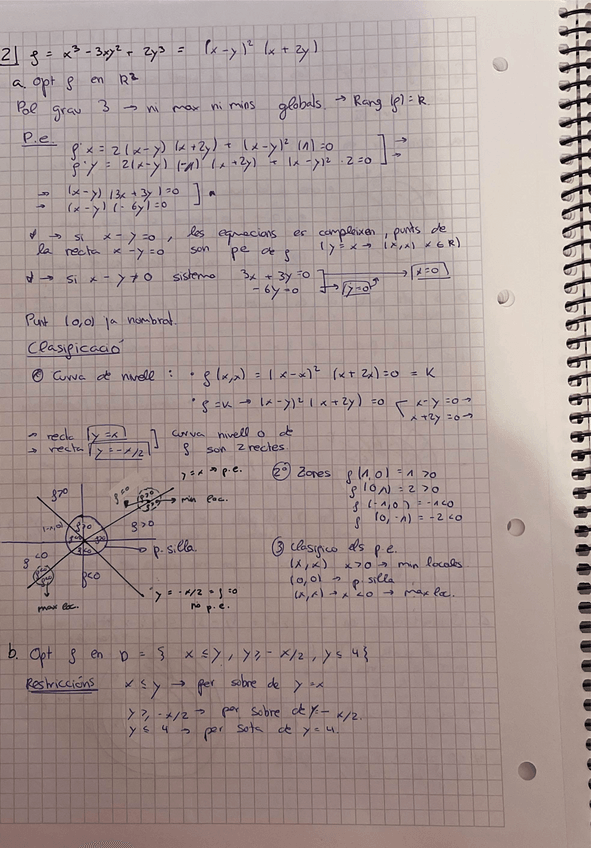 2] f = x³ - 3xy² + 2y³ = (x-y)² (x+2y)
a. Opt f en R²
Pol grau 3 → ni max ni mins globals. → Rang (f) = R.
P.e. f'x = 2(x-y) (x+2y) + (x-y)² (1) = 0 ] →
f'y = 2(x-y) (-1) (x+2y) + (x-y)² · 2 = 0 ] →
→ (x-y) (3x+3y) = 0 ]
→ (x-y) (-6y) = 0 ]
→ si x-y=0, les equacions es compleixen, punts de
la recta x-y=0 són pe de f (y=x → (x,x) x∈R)
→ si x-y≠0 sistema 3x+3y=0 → x=0
-6y=0 → y=0
Punt (0,0) ja nombrat.
Clasificació
① Curva de nivell : · f(x,x) = (x-x)² (x+2x) = 0 = K
· f=K → (x-y)² (x+2y) = 0 < x-y=0 →
x+2y=0 →
→ recta y=x ] curva nivell 0 de
→ recta y=-x/2 ] f son 2 rectes.
y=x → p.e.
f>0
f=0
f>0
→ min loc.
(-1,0)
f>0
f>0
→ p. silla
f<0
f<0
max loc.
y=-x/2 → f=0
no p.e.
② Zones f(1,0) = 1 >0
f(0,1) = 2 >0
f(-1,0) = -1<0
f(0,-1) = -2<0
③ Clasifico els p.e.
(x,x) x>0 → min locals
(0,0) → p. silla
(x,x) → x<0 → max loc.
b. Opt f en D = { x ≤ y, y ≥ -x/2, y ≤ 4 }
Restriccións x ≤ y → per sobre de y=x
y ≥ -x/2 → per sobre de y=-x/2.
y ≤ 4 → per sota de y=4.